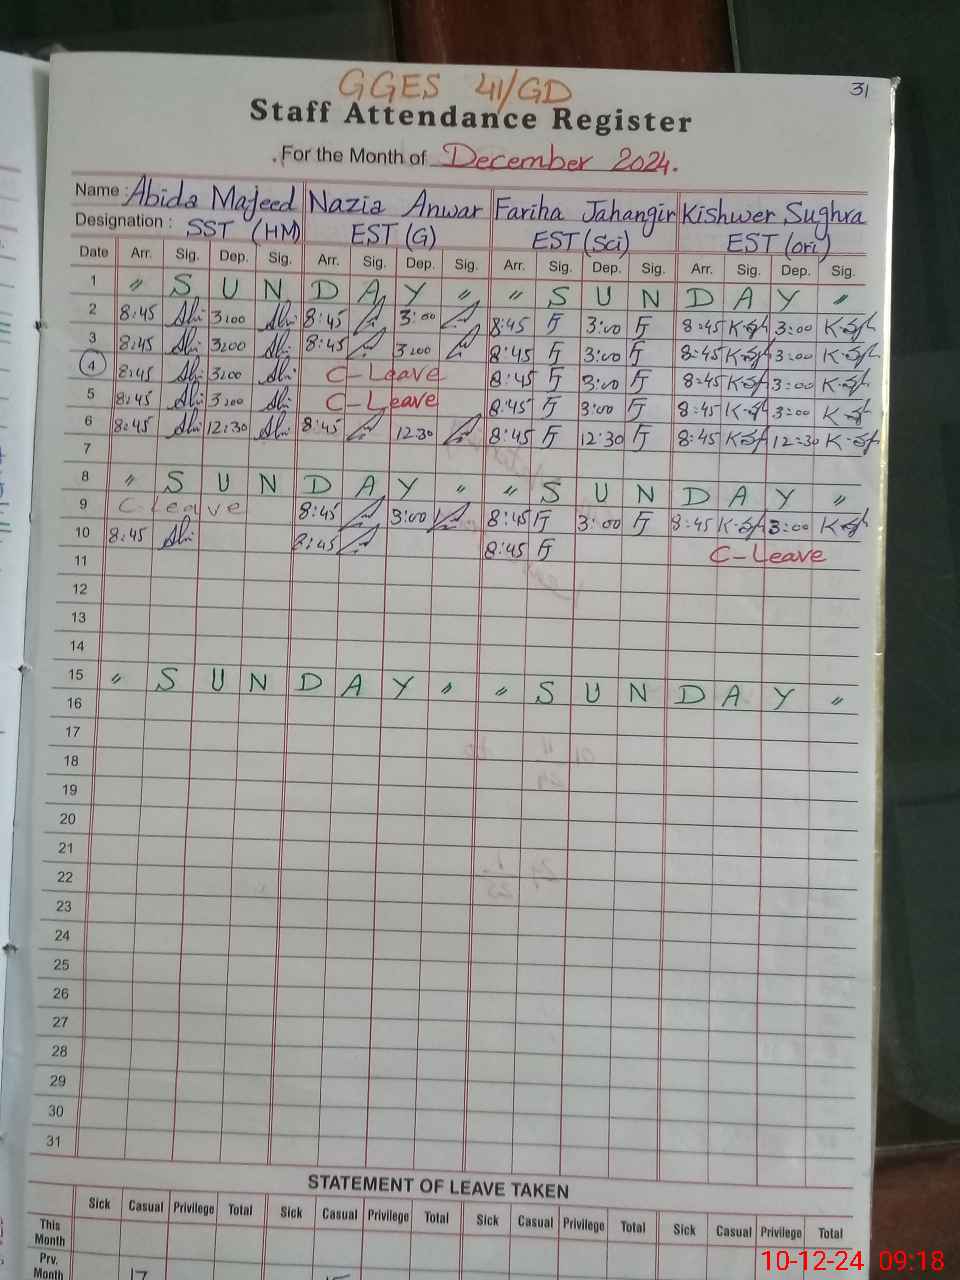 31
GGES 41/GD
Staff Attendance Register
For the Month of December 2024.
Name : Abida Majeed Nazia Anwar Fariha Jahangir Kishwer Sughra
Designation : SST (HM) EST (G) EST (Sci) EST (ori)
Date Arr. Sig. Dep. Sig. Arr. Sig. Dep. Sig. Arr. Sig. Dep. Sig. Arr. Sig. Dep. Sig.
1 " S U N D A Y " " S U N D A Y "
2 8:45 3:00 8:45 3:00 8:45 FJ 3:00 FJ 8:45 3:00
3 8:45 3:00 8:45 3:00 8:45 FJ 3:00 FJ 8:45 3:00
4 8:45 3:00 C-Leave 8:45 FJ 3:00 FJ 8:45 3:00
5 8:45 3:00 C-Leave 8:45 FJ 3:00 FJ 8:45 3:00
6 8:45 12:30 8:45 12:30 8:45 FJ 12:30 FJ 8:45 12:30
7
8 " S U N D A Y " " S U N D A Y "
9 C-Leave 8:45 3:00 8:45 FJ 3:00 FJ 8:45 3:00
10 8:45 8:45 8:45 FJ C-Leave
11
12
13
14
15 " S U N D A Y " " S U N D A Y "
16
17
18
19
20
21
22
23
24
25
26
27
28
29
30
31
STATEMENT OF LEAVE TAKEN
Sick Casual Privilege Total Sick Casual Privilege Total Sick Casual Privilege Total Sick Casual Privilege Total
This Month
Prv. Month
10-12-24 09:18